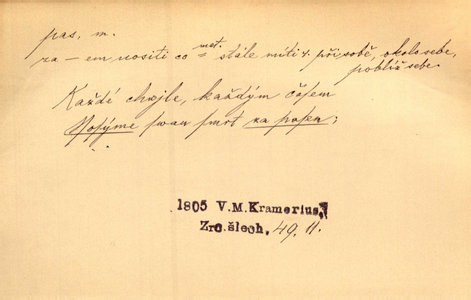 pas, m.
za – em nositi co = met. stále míti při sobě, okolo sebe,
poblíž sebe.
Každé chvjle, každým čásem
Nosýme swau smrt za pasem;
1805 V.M.Kramerius,
Zrc.šlech. 49. II.